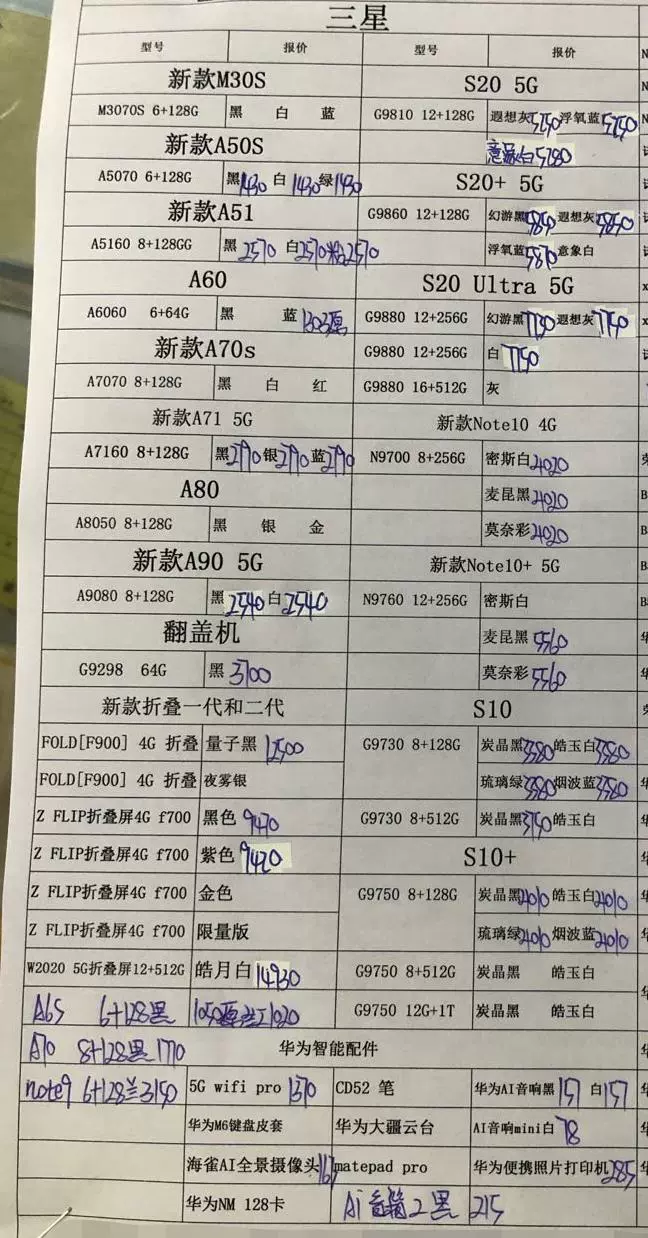 三星
型号 报价 型号 报价
新款M30S S20 5G
M3070S 6+128G 黑 白 蓝 G9810 12+128G 遐想灰5250 浮氧蓝5250
新款A50S 意象白5280
A5070 6+128G 黑1430 白1430 绿1430 S20+ 5G
新款A51 G9860 12+128G 幻游黑5850 遐想灰5850
A5160 8+128GG 黑2570 白2570 粉2570 浮氧蓝5870 意象白
A60 S20 Ultra 5G
A6060 6+64G 黑 蓝1303原 G9880 12+256G 幻游黑7730 遐想灰7750
新款A70s G9880 12+256G 白7750
A7070 8+128G 黑 白 红 G9880 16+512G 灰
新款A71 5G 新款Note10 4G
A7160 8+128G 黑2790 银2790 蓝2790 N9700 8+256G 密斯白4020
A80 麦昆黑4020
A8050 8+128G 黑 银 金 莫奈彩4020
新款A90 5G 新款Note10+ 5G
A9080 8+128G 黑2540 白2540 N9760 12+256G 密斯白
翻盖机 麦昆黑5560
G9298 64G 黑3700 莫奈彩5560
新款折叠一代和二代 S10
FOLD[F900] 4G 折叠 量子黑12500 G9730 8+128G 炭晶黑3580 皓玉白3580
FOLD[F900] 4G 折叠 夜雾银 琉璃绿3580 烟波蓝3580
Z FLIP折叠屏4G f700 黑色9470 G9730 8+512G 炭晶黑3750 皓玉白
Z FLIP折叠屏4G f700 紫色9420 S10+
Z FLIP折叠屏4G f700 金色 G9750 8+128G 炭晶黑4010 皓玉白4010
Z FLIP折叠屏4G f700 限量版 琉璃绿4010 烟波蓝4010
W2020 5G折叠屏12+512G 皓月白14930 G9750 8+512G 炭晶黑 皓玉白
A6S 6+128黑 1050原 1020 G9750 12G+1T 炭晶黑 皓玉白
A70 8+128黑 1770 华为智能配件
note9 6+128兰3150 5G wifi pro 1370 CD52 笔 华为AI音响黑157 白157
华为M6键盘皮套 华为大疆云台 AI音响mini白78
海雀AI全景摄像头163 matepad pro 华为便携照片打印机285
华为NM 128卡 Ai音箱2黑 215